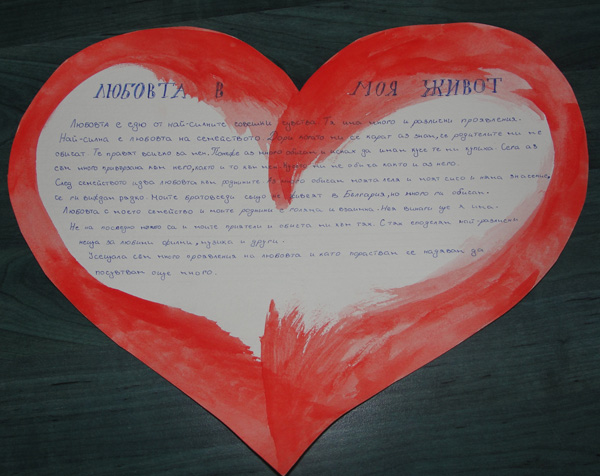 ЛЮБОВТА В МОЯ ЖИВОТ
Любовта е едно от най-силните човешки чувства. Тя има много и различни проявления.
Най-силна е любовта на семейството. Дори когато ми се карат аз знам, че родителите ми ме
обичат. Те правят всичко за мен. Понеже аз много обичам и исках да имам куче те ми купиха. Сега аз
съм много привързана към него, както и то към мен. Кучето ми ме обича както и аз него.
След семейството идва любовта към роднините. Аз много обичам моята леля и моят чичо и няма значение,
че ги виждам рядко. Моите братовчеди също не живеят в България, но много ги обичам.
Любовта с моето семейство и моите роднини е голяма и взаимна. Нея винаги ще я има.
Не на последно място са и моите приятели и обичта ми към тях. С тях споделям най-различни
неща за любими филми, музика и други.
Усещала съм много проявления на любовта и като порастван се надявам да
почувствам още много.